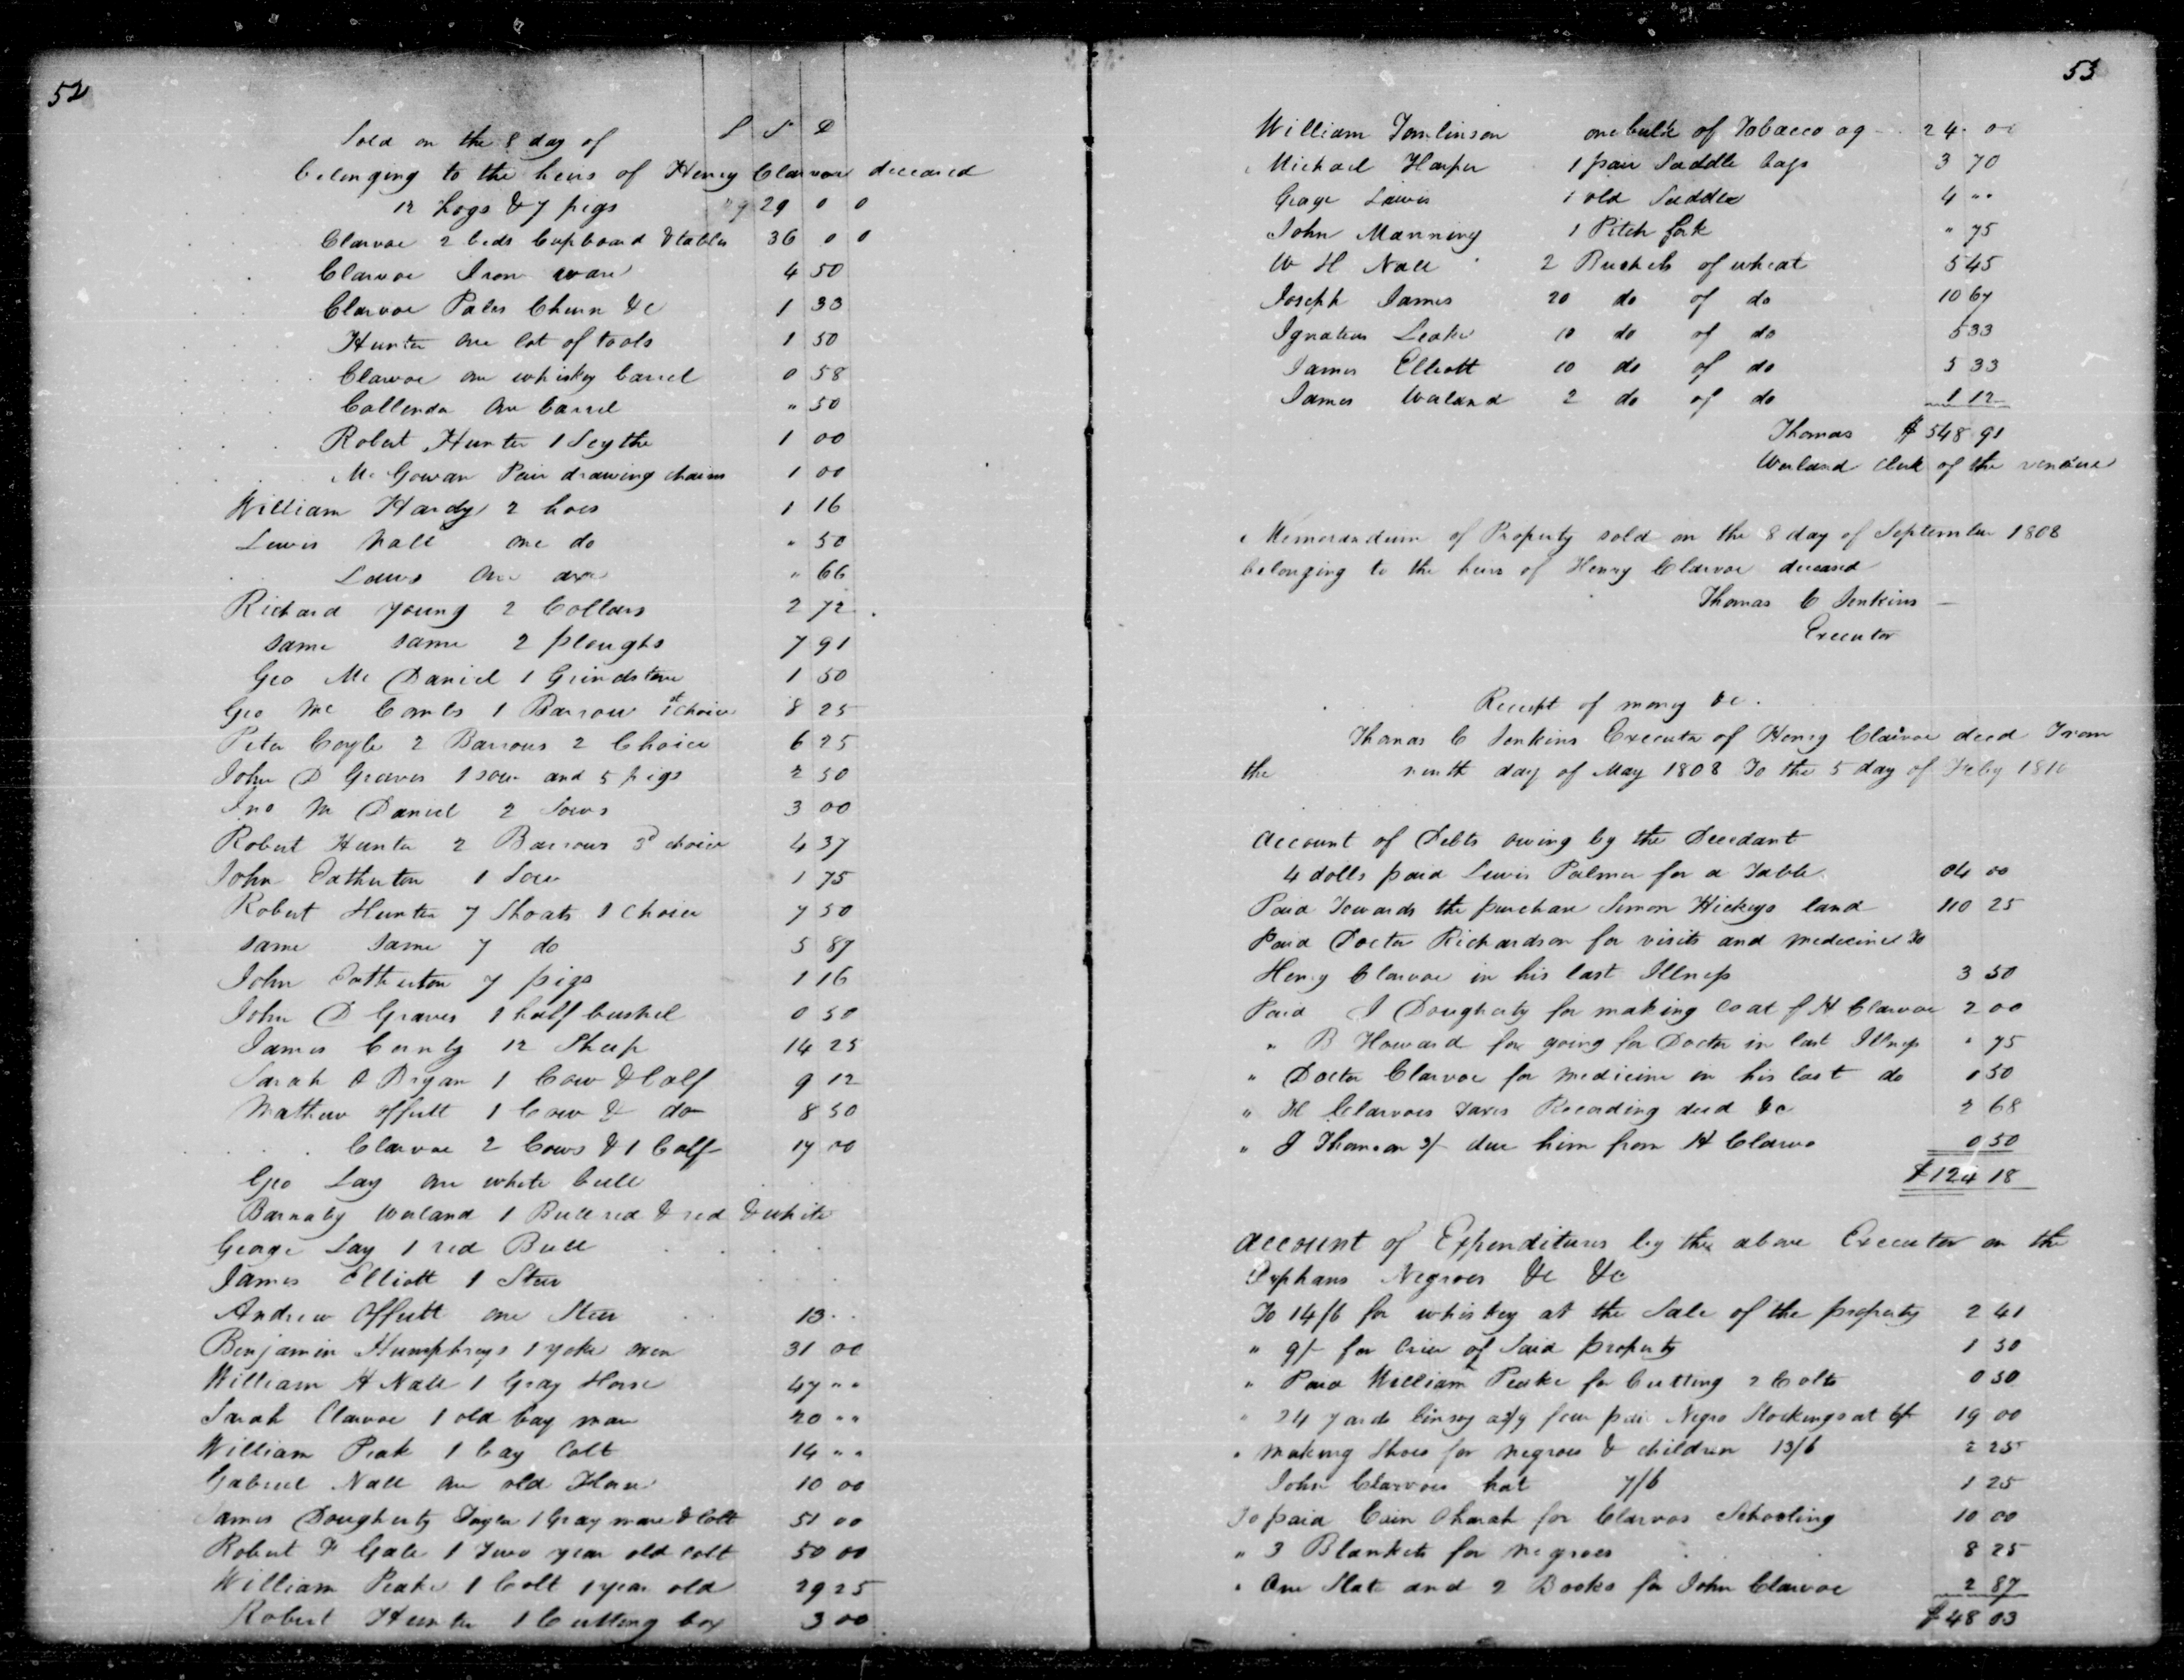 52
L S D
Sold on the 8 day of
belonging to the heirs of Henry Clarvoe deceased
12 hogs & 7 pigs 29 0 0
Clarvoe 2 beds Cupboard & tables 36 0 0
Clarvoe Iron ware 4 50
Clarvoe Pales Churn &c 1 33
Hunter one lot of tools 1 50
Clarvoe one whiskey barrel 0 58
Callender one barrel " 50
Robert Hunter 1 Scythe 1 00
Mc Gowan Pair drawing chains 1 00
William Hardy 2 hoes 1 16
Lewis Nall one do " 50
Laws one axe " 66
Richard Young 2 Collars 2 72
same same 2 ploughs 7 91
Geo Mc Daniel 1 Grindstone 1 50
Geo Mc Combs 1 Barrow 1st choice 8 25
Peter Coyle 2 Barrows 2 Choice 6 25
John D Graves 1 sow and 5 pigs 2 50
Jno M Daniel 2 Sows 3 00
Robert Hunter 2 Barrows 3d choice 4 37
John Tatherton 1 Sow 1 75
Robert Hunter 7 Shoats 1 Choice 7 50
same same 7 do 5 87
John Tatherton 7 pigs 1 16
John D Graves 1 half bushel 0 50
James 12 Sheep 14 25
Sarah O Bryan 1 Cow & Calf 9 12
Mathew Offutt 1 Cow & do 8 50
Clarvoe 2 Cows & 1 Calf 17 00
Geo Lay one white bull
Barnaby Worland 1 Bull red & red & white
George Lay 1 red Bull
James Elliott 1 Steer
Andrew Offutt one Steer 13 ..
Benjamin Humphreys 1 yoke oxen 31 00
William H Nall 1 Gray Horse 47 " "
Sarah Clarvoe 1 old bay mare 20 " "
William Peak 1 bay Colt 14 " "
Gabriel Nall one old Horse 10 00
James Dougherty 1 Gray mare & Colt 51 00
Robert F Gale 1 Two year old Colt 50 00
William Peake 1 Colt 1 year old 29 25
Robert Hunter 1 Cutting box 3 00
53
William Tomlinson one bulk of Tobacco ag 24 00
Michael Harper 1 pair Saddle bags 3 70
George Lewis 1 old Saddle 4 " "
John Manning 1 Pitch fork " 75
W H Nall 2 Bushels of wheat 5 45
Joseph James 20 do of do 10 67
Ignatius Leake 10 do of do 5 33
James Elliott 10 do of do 5 33
James Worland 2 do of do 1 12
Thomas $ 548 91
Worland Clerk of the vendue
Memorandum of Property sold on the 8 day of September 1808
belonging to the heirs of Henry Clarvoe deceased
Thomas C Jenkins
Executor
Receipt of money &c.
Thomas C Jenkins Executor of Henry Clarvoe decd From
the ninth day of May 1808 To the 5 day of Feby 1810
Account of Debts owing by the Decedant
4 dolls paid Lewis Palmer for a Table 04 00
Paid Towards the purchase Simon Hickeys land 110 25
Paid Doctor Richardson for visits and medicines to
Henry Clarvoe in his last Illness 3 50
Paid J Dougherty for making Coat f H Clarvoe 2 00
" B Howard for going for Doctor in last Illness " 75
" Doctor Clarvoe for medicine in his last do 0 50
" H Clarvoes Taxes Recording deed &c 2 68
" J Thomson 3/- due him from H Clarvo 0 50
$124 18
Account of Expenditures by the above Executor on the
Orphans Negroes &c &c
To 14/6 for whiskey at the Sale of the property 2 41
" 9/- for Crier of Said property 1 50
" Paid William Peake for Cutting 2 Colts 0 50
" 24 yards linsey four pair Negro Stockings at 6/- 19 00
" making Shoes for negroes & children 13/6 2 25
John Clarvoes hat 7/6 1 25
To paid Cain Oharah for Clarvos Schooling 10 00
" 3 Blankets for negroes 8 25
" One Slate and 2 Books for John Clarvoe 2 87
$48 03